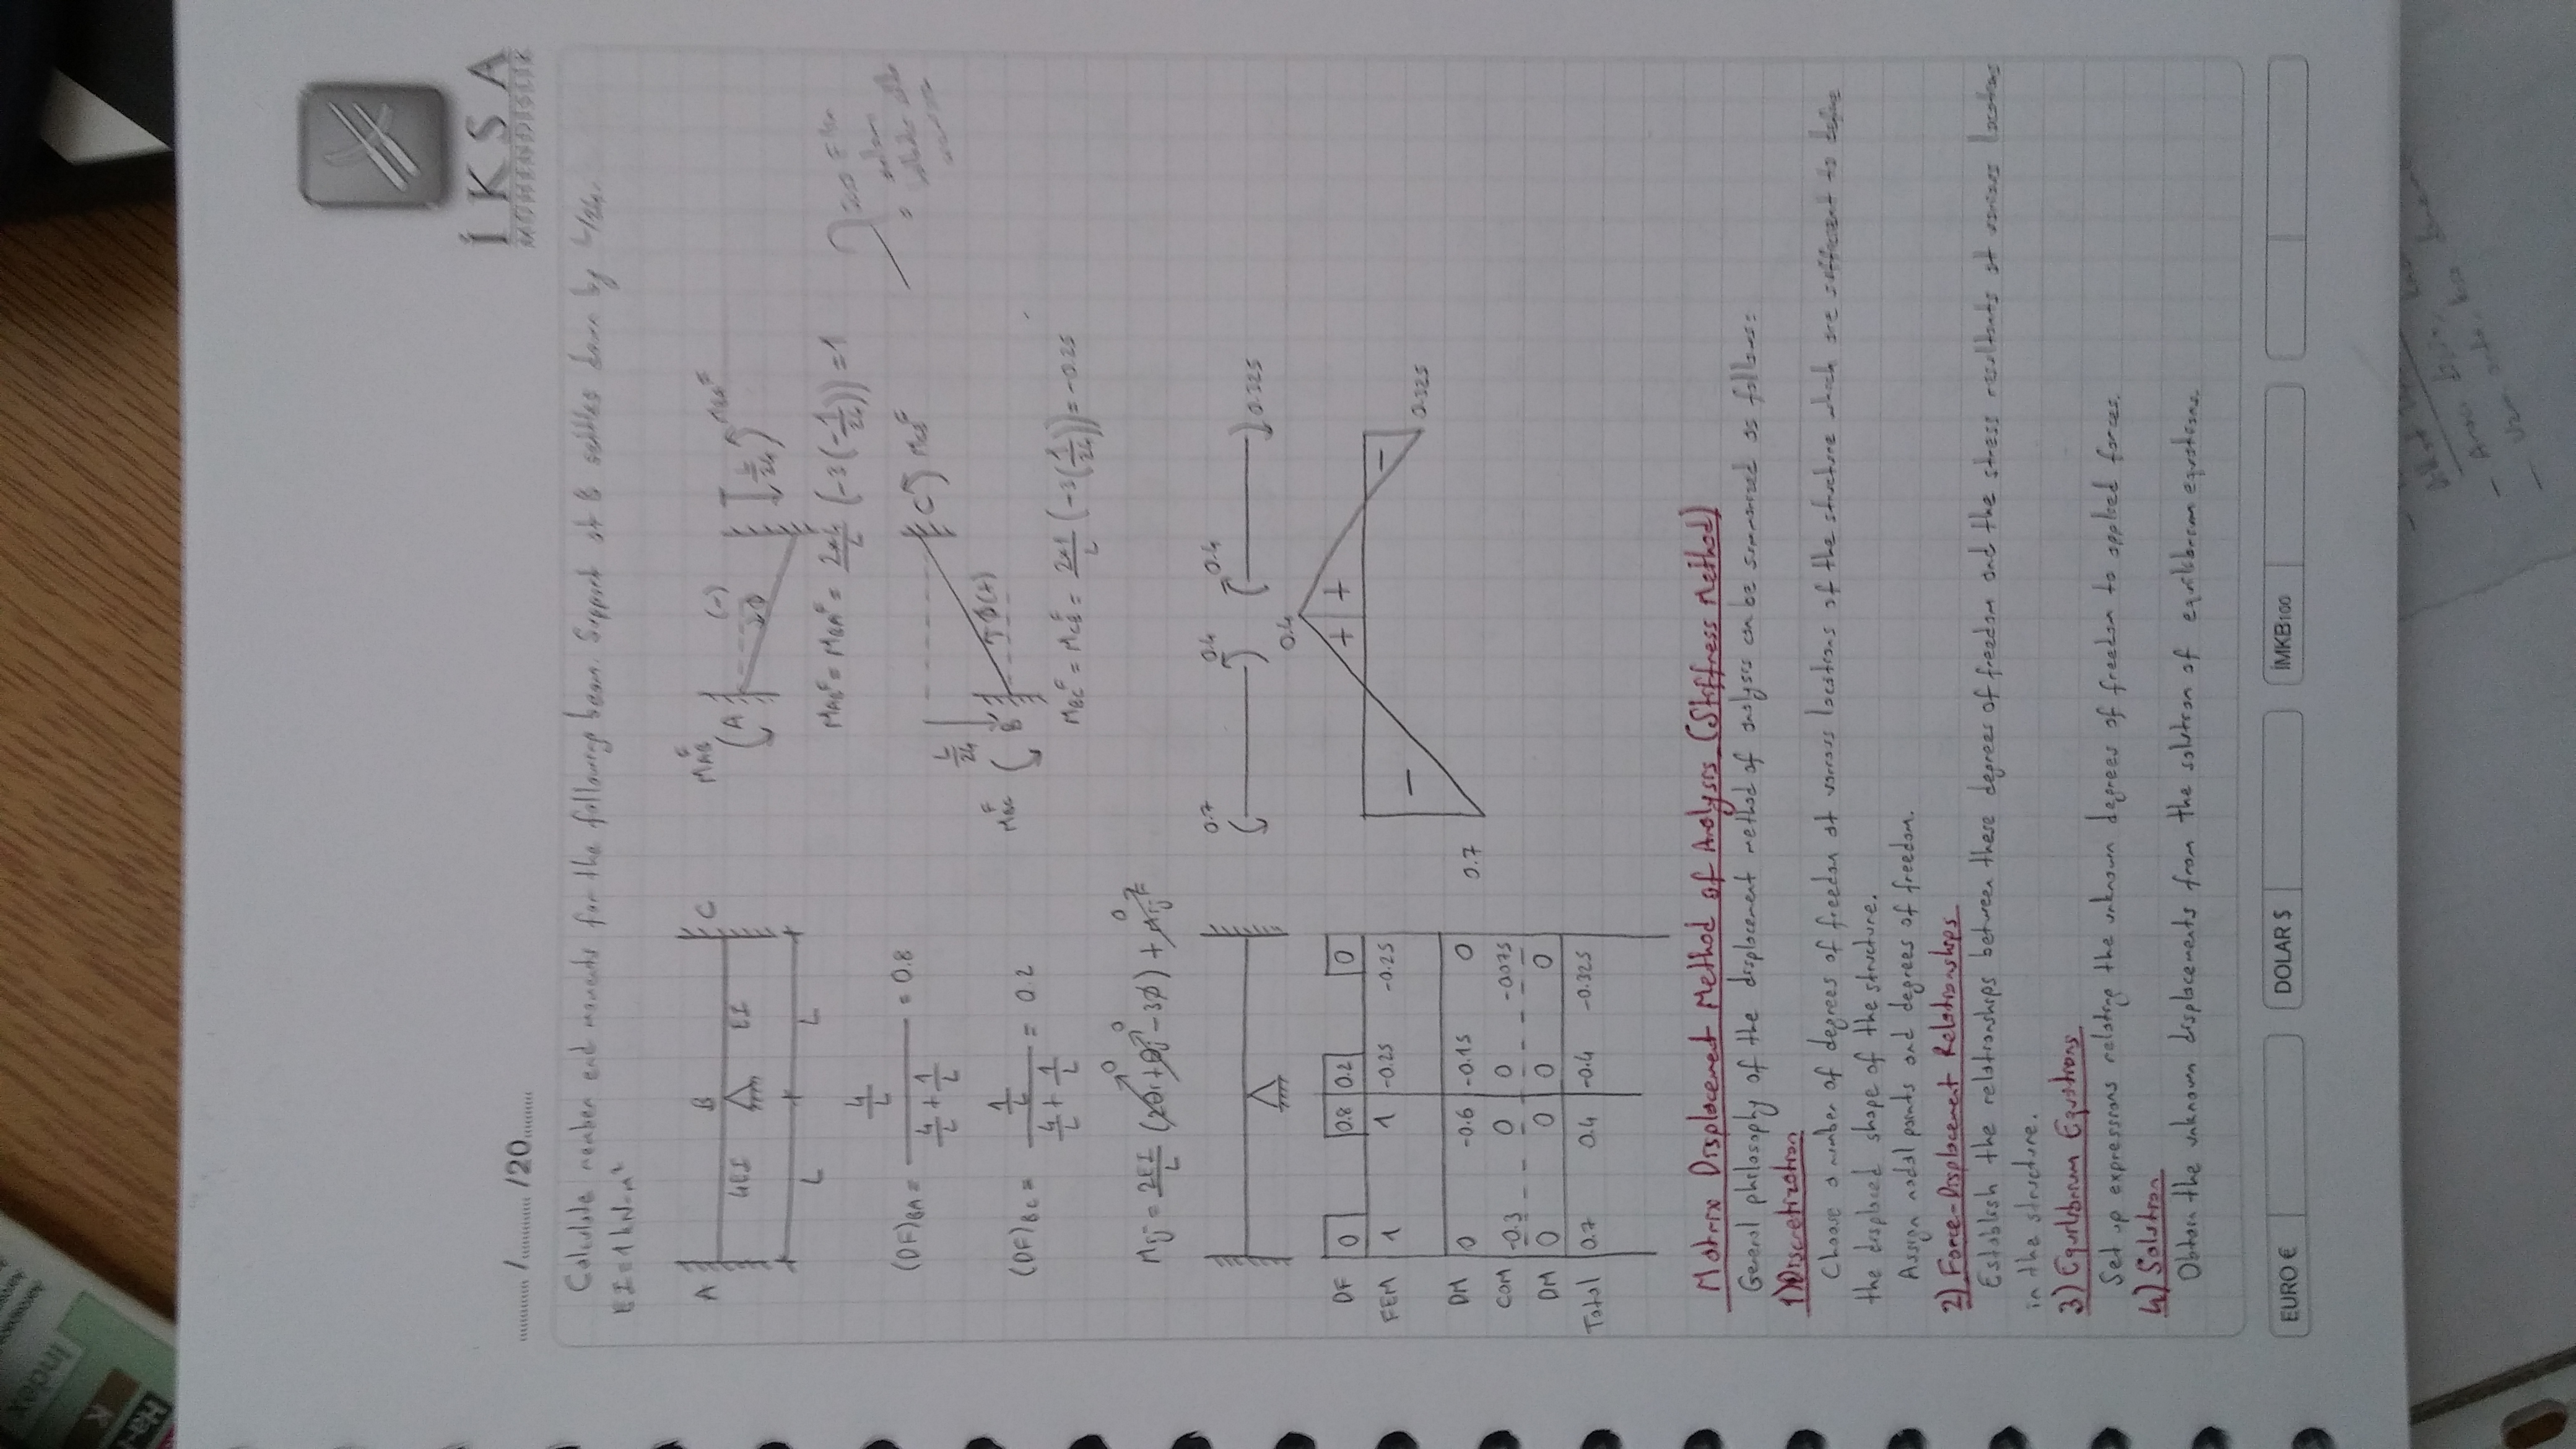 Index
K
Ha-
İKSA
MÜHENDİSLİK
............ /............ /20.........
Calculate member end moments for the following beam. Support at B settles down by L/24.
EI=1 kN-m²
A B C
4EI EI
L L
MAB^F A (-) ϕ L/24 MBA^F
MAB^F = MBA^F = 2*4/L (-3(-1/24)) = 1
(DF)BA = (4/L) / (4/L + 1/L) = 0.8
L/24 C MCB^F
MBC^F B' ϕ(+)
(DF)BC = (1/L) / (4/L + 1/L) = 0.2
MBC^F = MCB^F = 2*1/L (-3(1/24)) = -0.25
Mij = 2EI/L (2θi+θj-3ϕ) + Mij^F
0 0 0
0.7 0.4 0.4 0.325
0.4
+ +
- -
0.325
0.7
DF 0 0.8 0.2 0
FEM 1 1 -0.25 -0.25
DM 0 -0.6 -0.15 0
COM -0.3 0 0 -0.075
DM 0 0 0 0
Total 0.7 0.4 -0.4 -0.325
Matrix Displacement Method of Analysis (Stiffness Method)
General philosophy of the displacement method of analysis can be summarized as follows:
1) Discretization
Choose a number of degrees of freedom at various locations of the structure which are sufficient to define
the displaced shape of the structure.
Assign nodal points and degrees of freedom.
2) Force-Displacement Relationships
Establish the relationships between these degrees of freedom and the stress resultants at various locations
in the structure.
3) Equilibrium Equations
Set up expressions relating the unknown degrees of freedom to applied forces.
4) Solution
Obtain the unknown displacements from the solution of equilibrium equations.
EURO €
DOLAR $
İMKB100